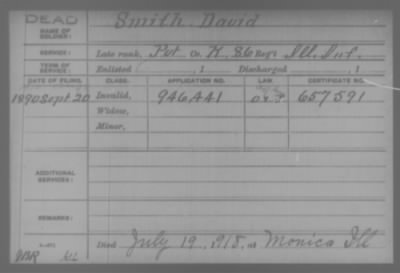 DEAD
NAME OF SOLDIER: Smith David
SERVICE: Late rank, Pvt Co. K, 86 Reg't Ill. Inf.
TERM OF SERVICE: Enlisted , 1 Discharged , 1
DATE OF FILING. CLASS. APPLICATION NO. LAW. CERTIFICATE NO.
1890 Sept 20 Invalid, 946441 657591
Widow,
Minor,
ADDITIONAL SERVICES:
REMARKS:
Died July 19, 1918, at Monica Ill